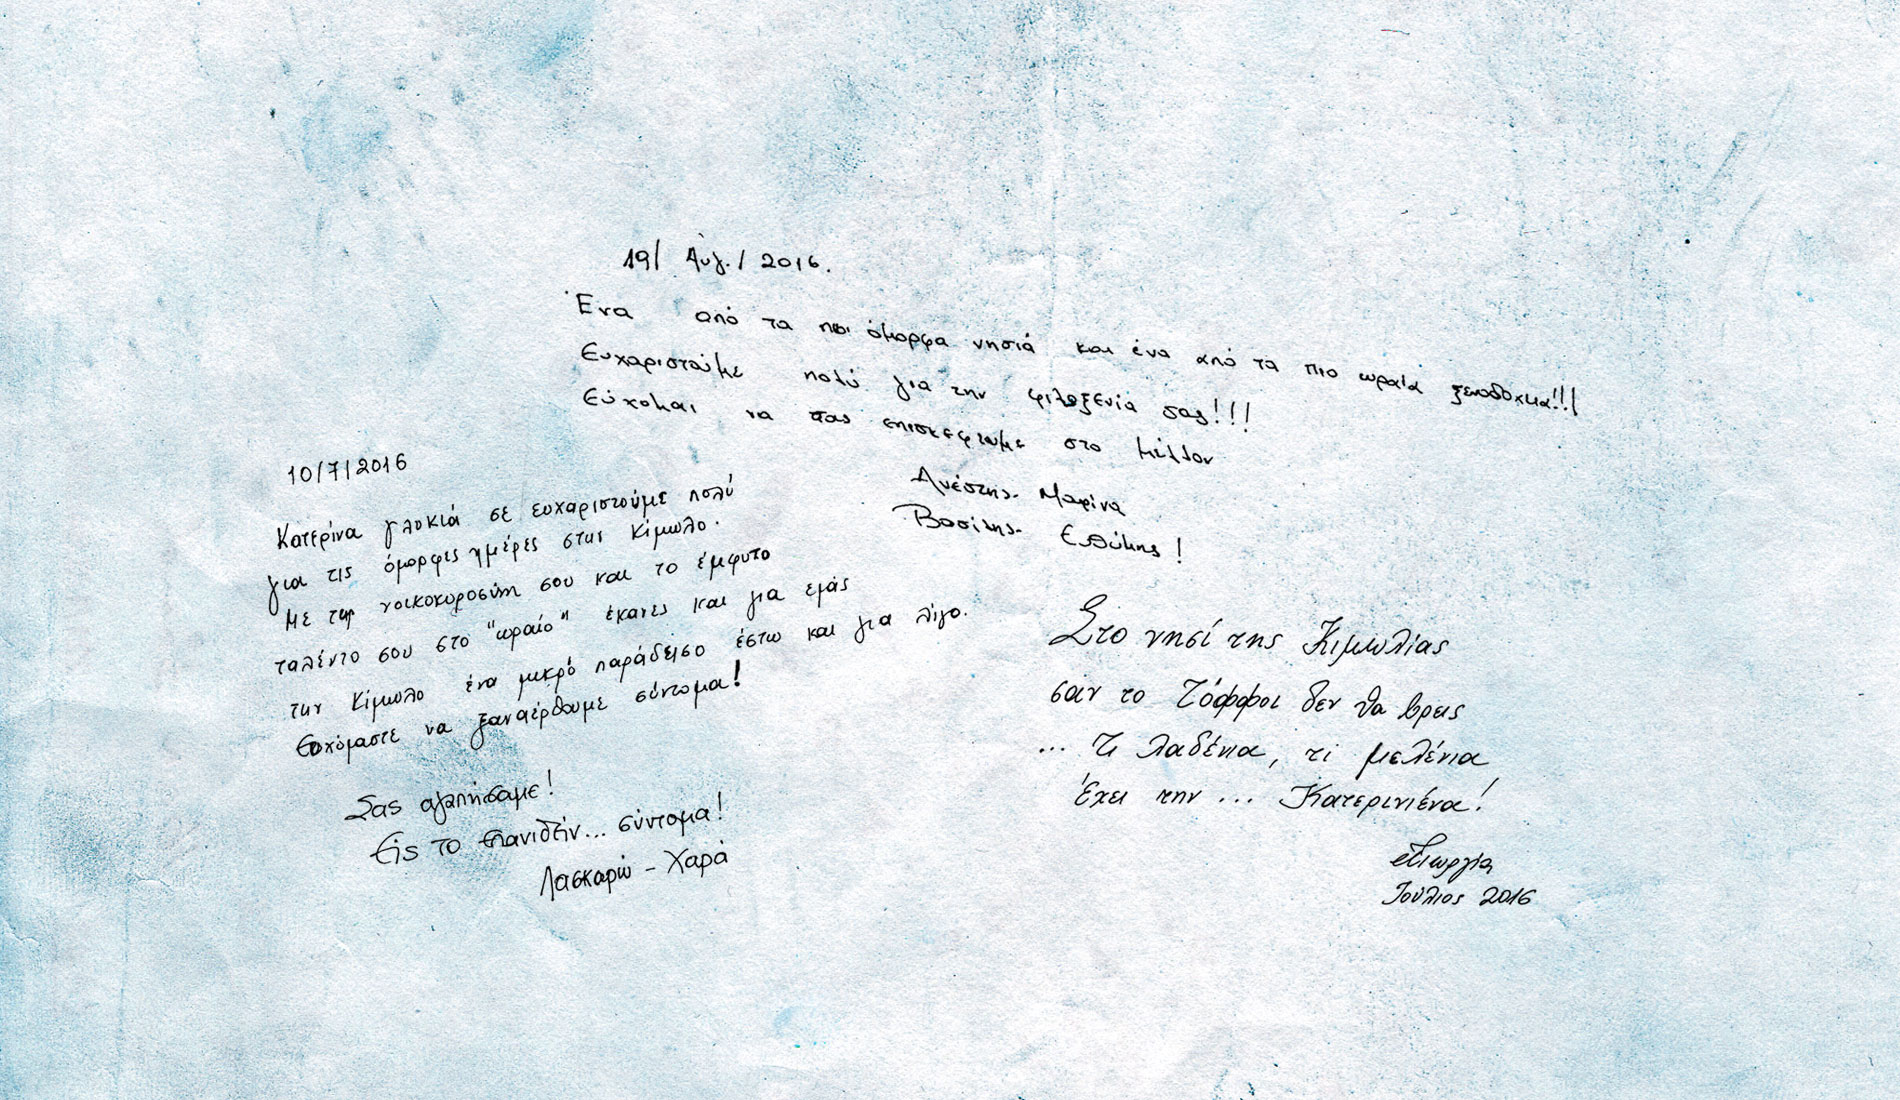 19/ Αύγ./ 2016.
Ένα από τα πιο όμορφα νησιά και ένα από τα πιο ωραία ξενοδοχεία!!!
Ευχαριστούμε πολύ για την φιλοξενία σας!!!
Εύχομαι να σας επισκεφτούμε στο μέλλον
Ανέστης - Μαρίνα
Βασίλης - Ευθύμης!
10/7/2016
Κατερίνα γλυκιά σε ευχαριστούμε πολύ
για τις όμορφες ημέρες στην Κίμωλο.
Με την νοικοκυροσύνη σου και το έμφυτο
ταλέντο σου στο "ωραίο" έκανες και για εμάς
την Κίμωλο ένα μικρό παράδεισο έστω και για λίγο.
Ευχόμαστε να ξαναέρθουμε σύντομα!
Σας αγαπήσαμε!
Εις το επανιδείν... σύντομα!
Λασκαρώ - Χαρά
Στο νησί της Κιμωλίας
σαν το Τόφφοι δεν θα βρεις
... Τι λαδένια, τι μελένια
Έχει την ... Κατερινιένα!
Γιωργία
Ιούλιος 2016